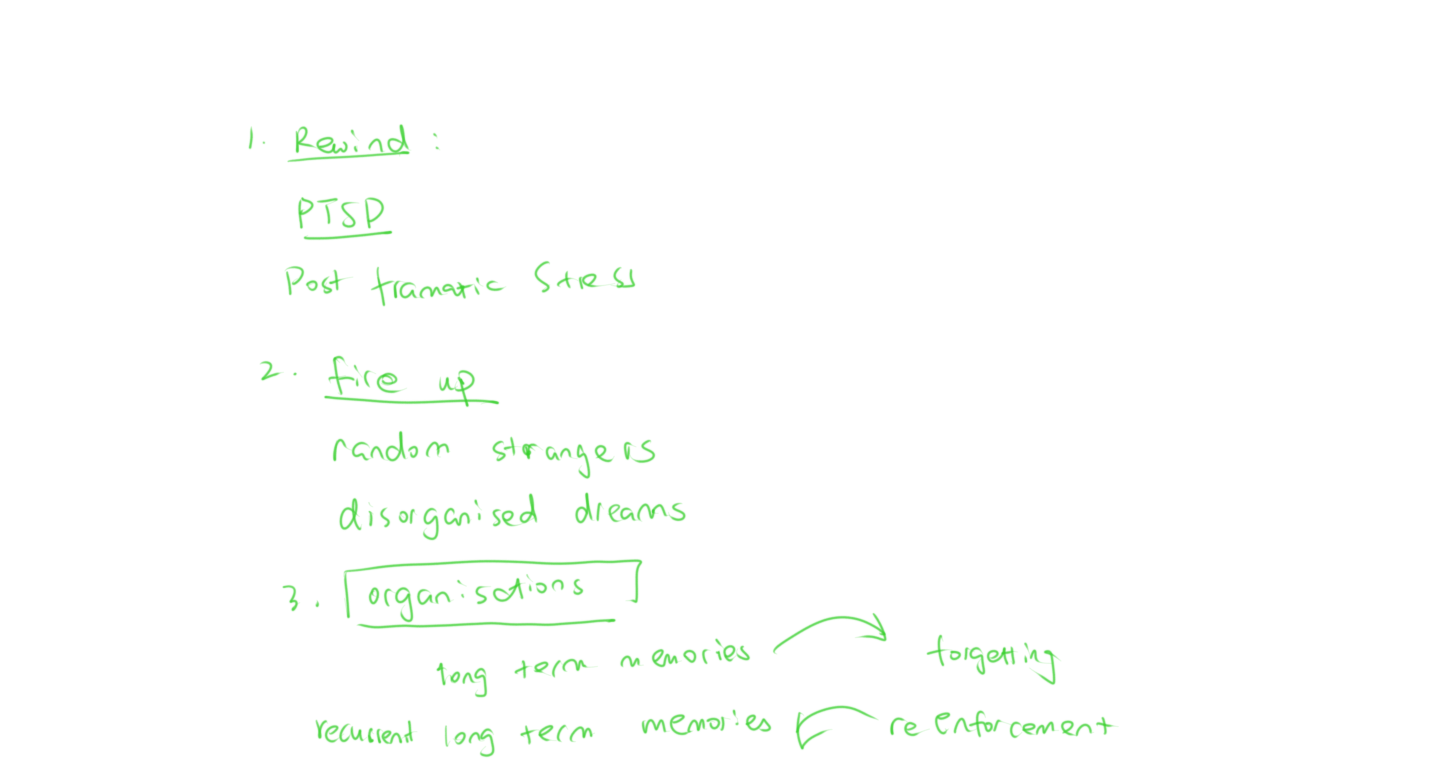 1. Rewind :
PTSD
Post tramatic Stress
2. fire up
random strangers
disorganised dreams
3. organisations
long term memories forgetting
recurrent long term memories re enforcement